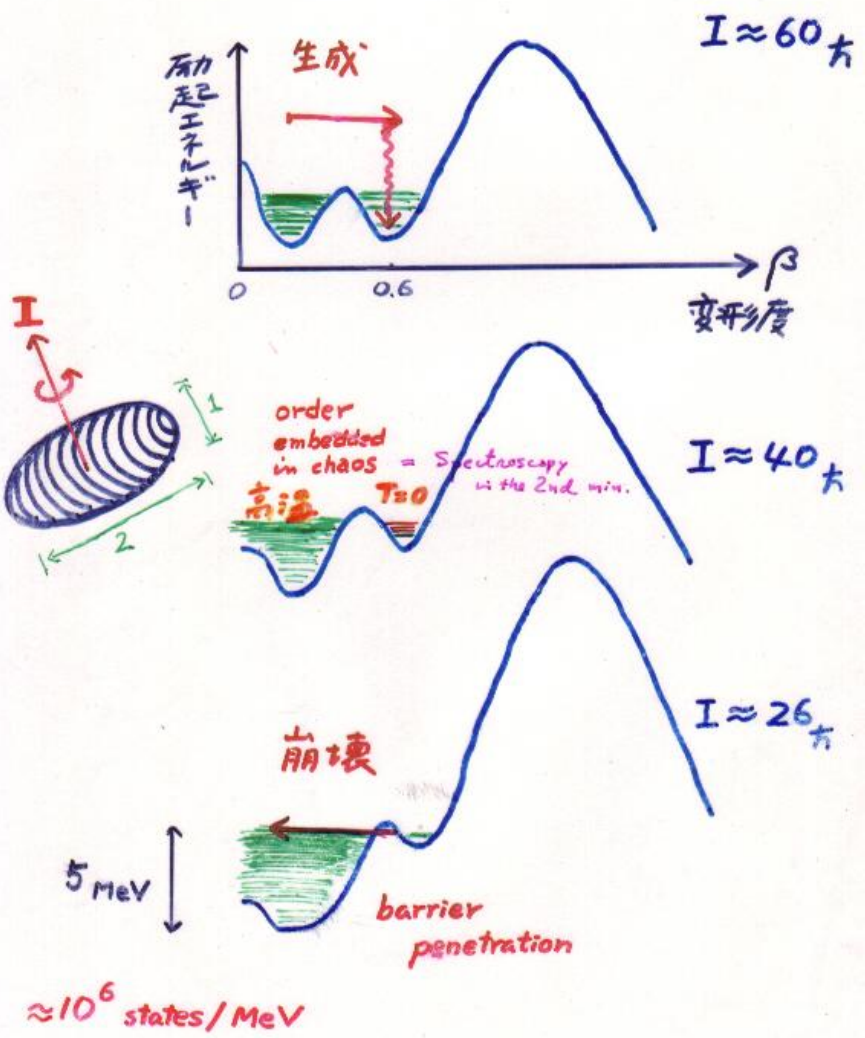 I≈60ℏ
励起エネルギー
生成
0
0.6
β
変形度
I
1
2
order
embedded
in chaos = Spectroscopy
in the 2nd min.
高温
T=0
I≈40ℏ
I≈26ℏ
崩壊
5 MeV
barrier
penetration
≈10⁶ states/MeV